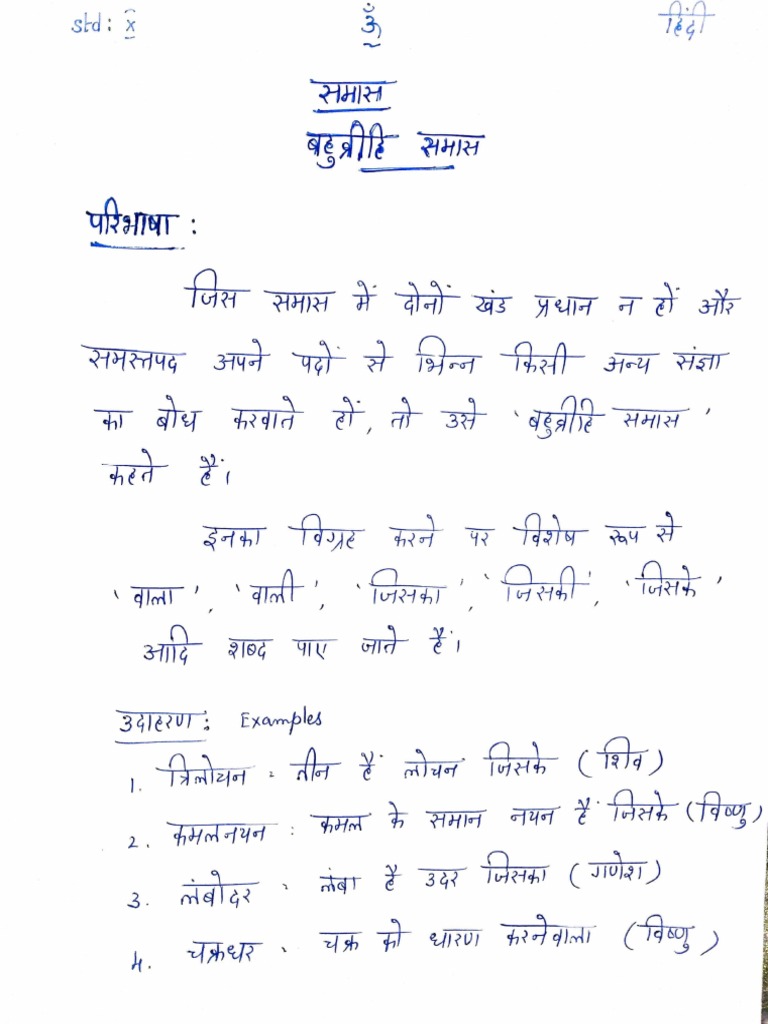 std: x ॐ हिंदी
समास
बहुव्रीहि समास
परिभाषा :
जिस समास में दोनों खंड प्रधान न हों और
समस्तपद अपने पदों से भिन्न किसी अन्य संज्ञा
का बोध करवाते हों, तो उसे 'बहुव्रीहि समास'
कहते हैं।
इनका विग्रह करने पर विशेष रूप से
'वाला', 'वाली', 'जिसका', 'जिसकी', 'जिसके'
आदि शब्द पाए जाते हैं।
उदाहरण : Examples
1. त्रिलोचन : तीन हैं लोचन जिसके (शिव)
2. कमलनयन : कमल के समान नयन हैं जिसके (विष्णु)
3. लंबोदर : लंबा है उदर जिसका (गणेश)
4. चक्रधर : चक्र को धारण करनेवाला (विष्णु)